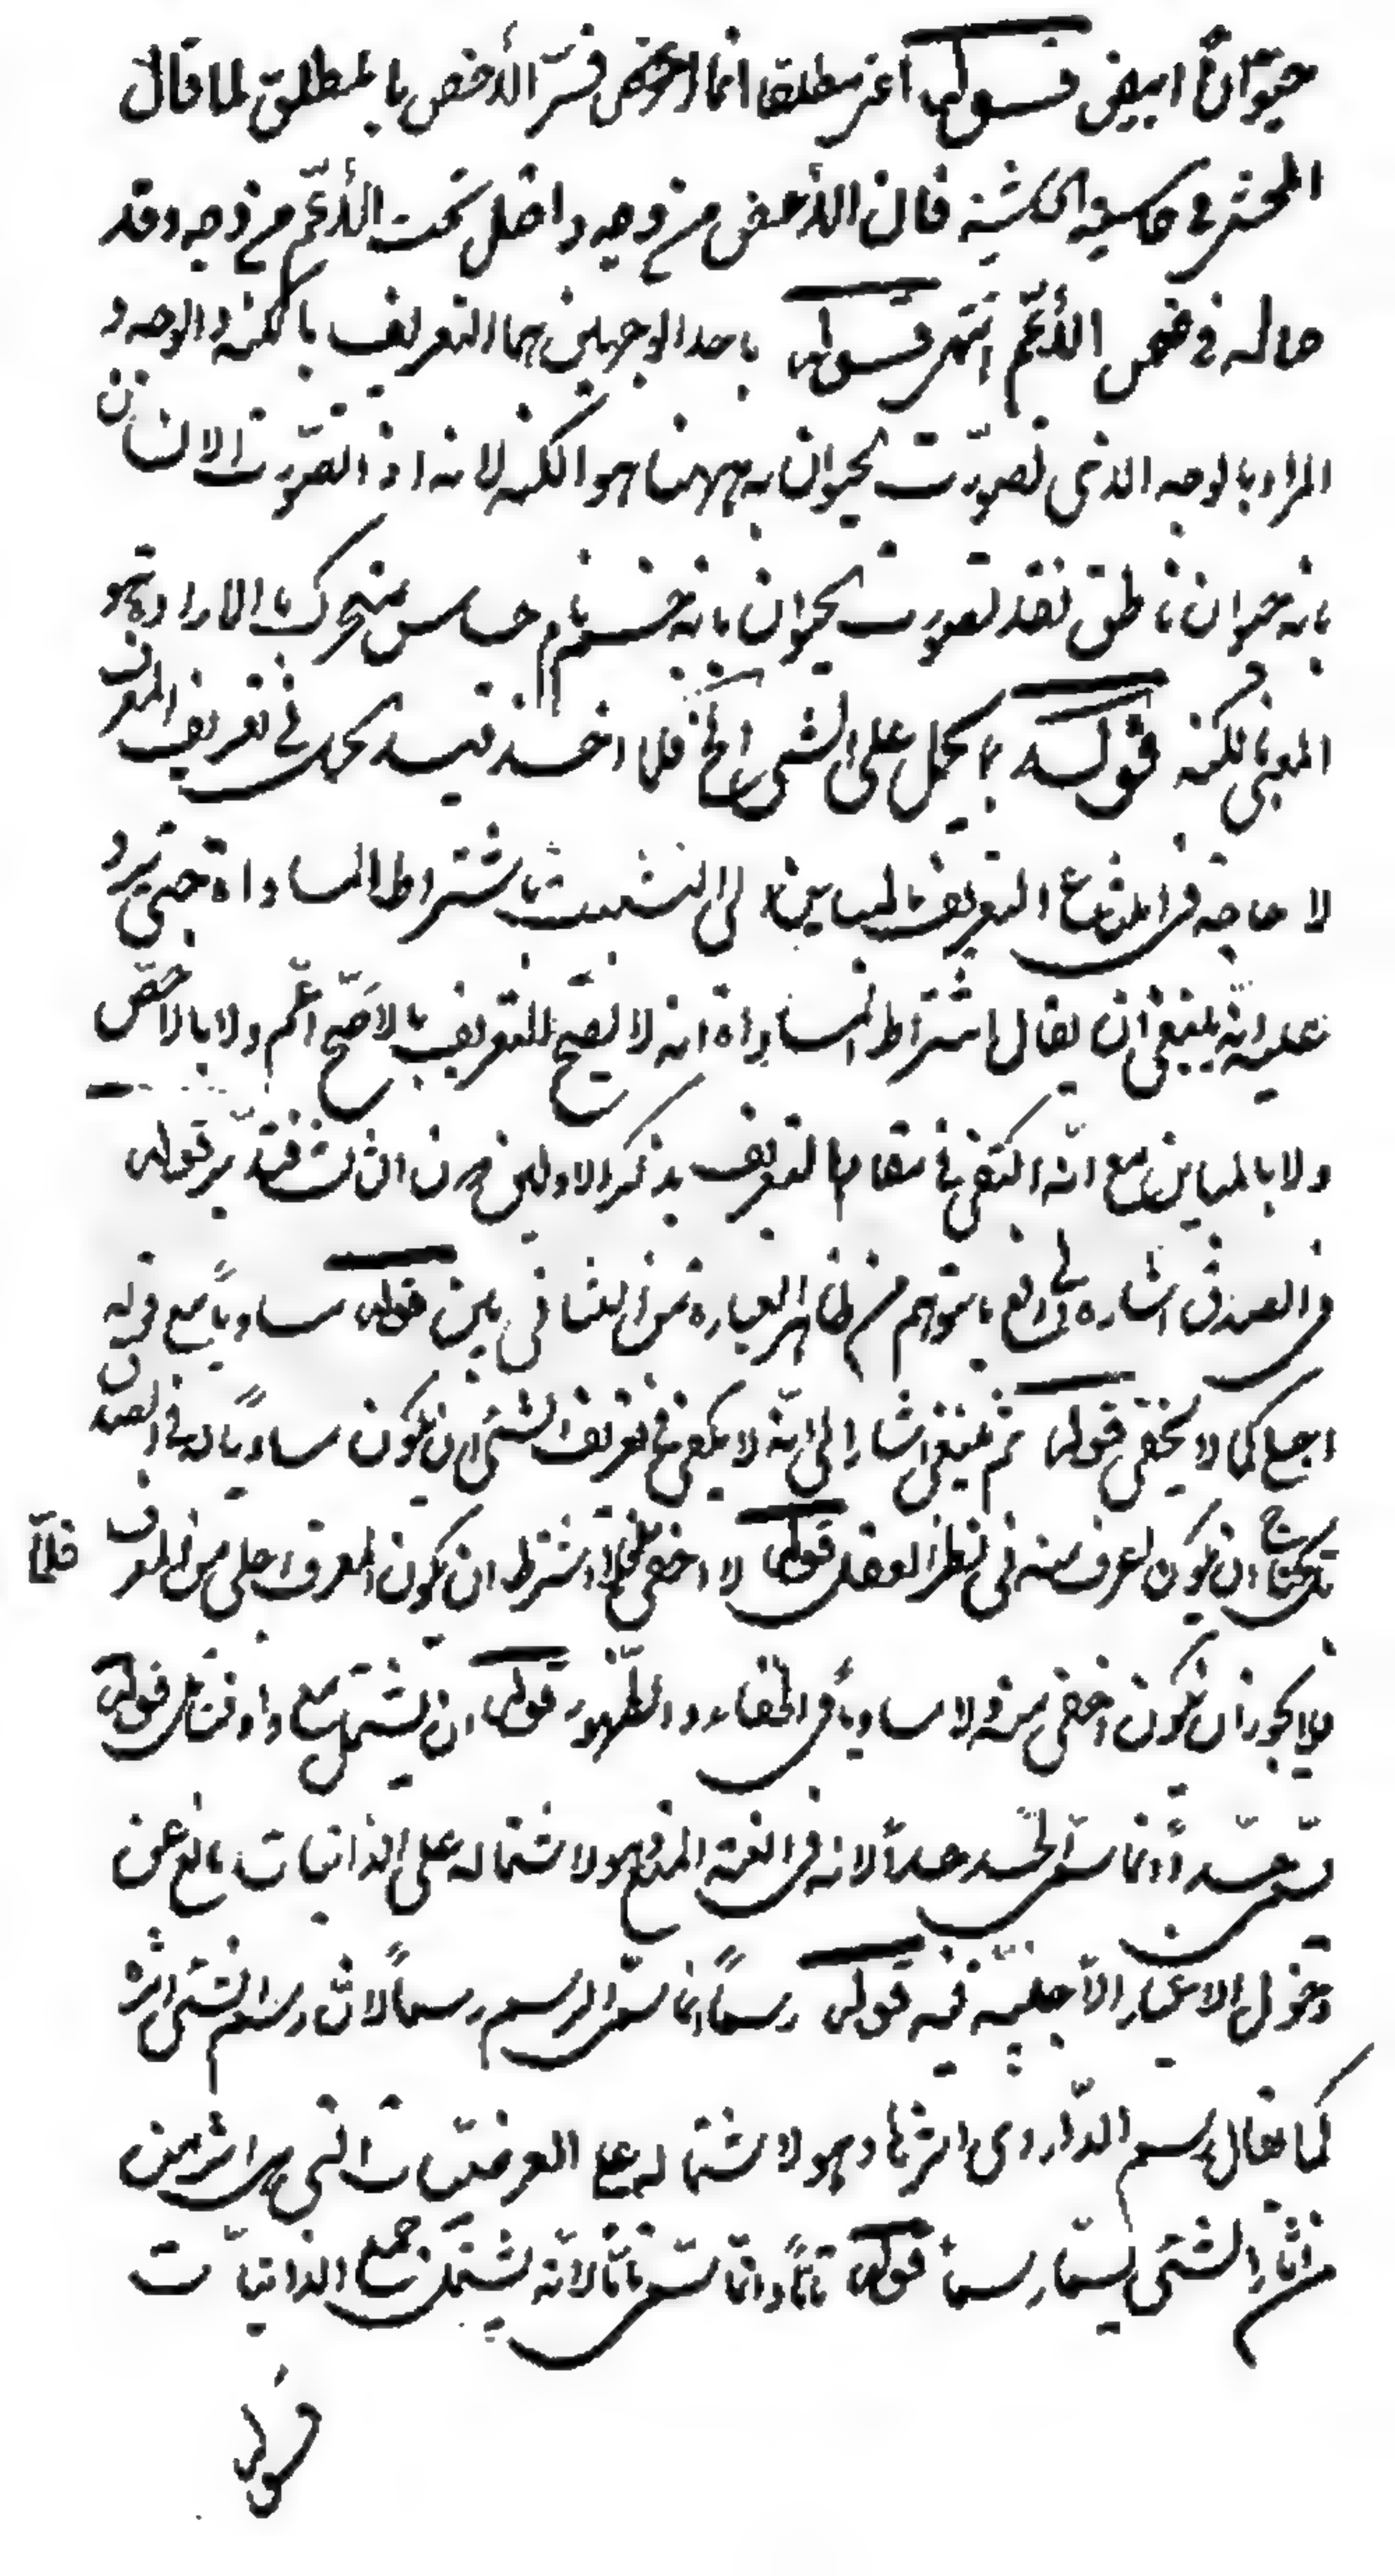 حيوانا ابيض قوله اعنى مطلقا انما فسّر الأخص بالمطلق لما قال
المحشى فى حاسية الحاشية فان الأخص من وجه داخل تحت الأعمّ من وجه وقد
حاله فى ضمن الأعمّ انتهى قوله باحد الوجهين هما التعريف بالكنه والوجه و
المراد بالوجه الذى تصوّرت الحيوان به ههنا هو الكنه لانه اذا تصوّرت الانسان
بانه حيوان ناطق فقد تصورت الحيوان بانه جسم نام حساس متحرك بالارادة وهو
المعنى بالكنه قوله ما يحمل على الشئ الخ فلما اخذ قيد الحمل فى تعريف المعرف
لا حاجة فى امتناع التعريف بالمباين الى التشبث باشتراط المساواة حتى يرد
عليه انه ينبغى ان يقال اشتراط المساواة انه لا يصح التعريف بالاعم ولا بالاخصّ
ولا بالمباين مع انّه اكتفى فى مقام التعريف بذكر الاولين دون الثالث فتدبّر قوله
فى الصدق اشارة الى دفع ما يتوهم من ظاهر العبارة من التنافى بين قوله مساوياً مع قوله
اجلى كما لا يخفى قوله ثم ينبغى اشار الى انّه لا يكفى فى تعريف الشئ ان يكون مساويًا له فى الصدق
بل يحتاج ان يكون اعرف منه فى نظر العقل قوله لا اخفى اشترط ان يكون المعرف اجلى من المعرف فلمّا
فلا يجوز ان يكون اخفى منه ولا مساوياً فى الخفاء والظّهور قوله ان يشتمل قوله
يسمّى حدّاً انما سمّى الحد حداً لانه فى اللغة المنع وهو لاشتماله على الذاتيات مانع عن
دخول الاغيار الأجنبية فيه قوله رسماً انما سمّى الرسم رسماً لانّ رسم الشئ اثره
كما يقال رسم الدّار اى اثرها وهو لاشتماله على العرضيّات التى هى اثر من
من اثار الشئ يسمّى رسماً قوله تامّاً وانّما سمّى تامّاً لانّه يشتمل جميع الذاتيّات
قوله